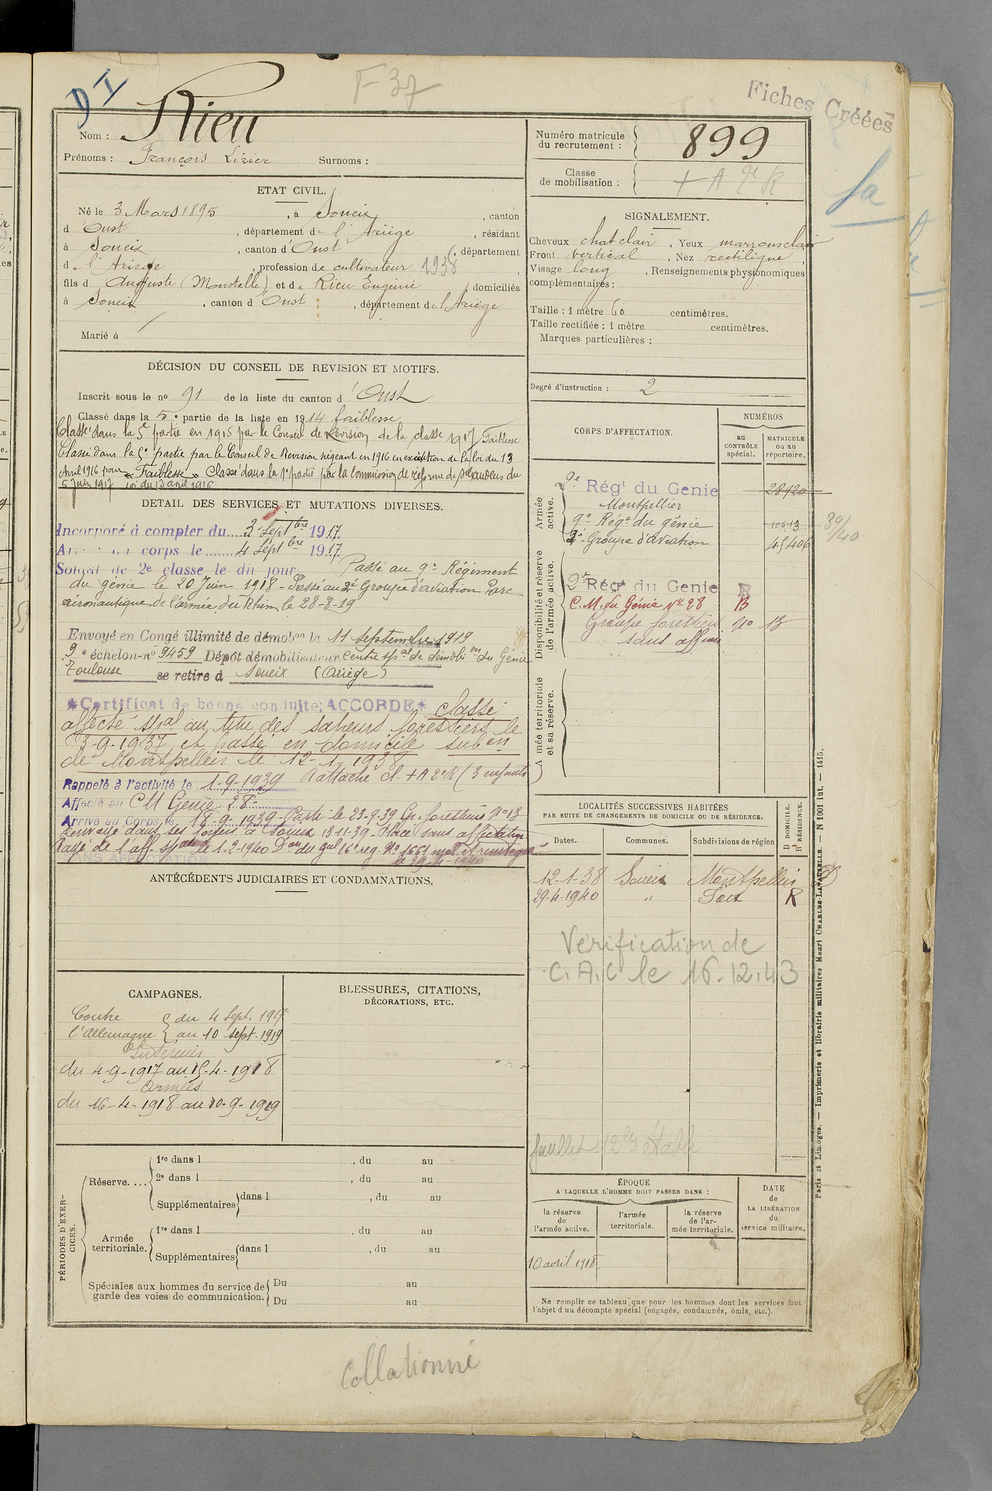 D I
F 37
Fiches Créées
Nom : Rieu
Prénoms : François Lizier Surnoms :
Numéro matricule du recrutement : 899
Classe de mobilisation :
ETAT CIVIL.
Né le 3 Mars 1895, à Soueix, canton
d'Oust, département de l'Ariège, résidant
à Soueix, canton d'Oust, département
d l'Ariège, profession de cultivateur 1938
fils d'Auguste (Moustelle) et de Rieu Eugénie, domiciliés
à Soueix, canton d'Oust, département de l'Ariège
Marié à
SIGNALEMENT.
Cheveux chat clair, Yeux marrons clair
Front vertical, Nez rectiligne,
Visage long, Renseignements physionomiques
complémentaires :
Taille : 1 mètre 60 centimètres.
Taille rectifiée : 1 mètre centimètres.
Marques particulières :
Degré d'instruction : 2
DÉCISION DU CONSEIL DE REVISION ET MOTIFS.
Inscrit sous le no 91 de la liste du canton d'Oust
Classé dans la 5e partie de la liste en 1914 faiblesse
Classé dans la 5e partie en 1915 par le Conseil de Revision de la classe 1917 Faiblesse
Classé dans la 6e partie par le Conseil de Revision siégeant en 1916 en exécution de la loi du 13
Avril 1916 pour « Faiblesse » Classé dans la 1e partie par la commission de réforme de St Gaudens du
5 Juin 1917 loi du 13 avril 1916
DETAIL DES SERVICES ET MUTATIONS DIVERSES.
Incorporé à compter du 3 Septbre 1917.
Arrivé au corps le 4 Septbre 1917.
Soldat de 2e classe le dit jour Passé au 9e Régiment
du génie le 20 Juin 1918 - Passé au 2e Groupe d'aviation Parc
aéronautique de l'armée du Rhin le 28-8-19
Envoyé en Congé illimité de démobon le 11 septembre 1919
9e échelon no 9459 Dépôt démobilisateur Centre spal de démobion du Génie
Toulouse se retire d Soueix (Ariège)
*Certificat de bonne conduite: ACCORDÉ* Classé
affecté spal au titre des sapeurs forestiers le
13-9-1937 et passe en domicile subon
de Montpellier le 12-1-1938
Rappelé à l'activité le 1-9-1939 Rattaché cl + A 2e R (3 enfants)
Affecté au CM Génie 28
Arrivé au Corps le 18-9-1939 Parti le 23-9-39 Gr. forestier No 18
Renvoyé dans ses foyers à Soueix 13-11-39 - Placé sans affectation
CORPS D'AFFECTATION.
NUMÉROS
au contrôle spécial.
MATRICULE ou au répertoire.
Armée active.
2e Régt du Génie 28920
Montpellier
9e Régt du génie 10613
2e Groupe d'aviation 45406
Disponibilité et réserve de l'armée active.
2e Régt du Génie R
C.M. du Génie No 28 B
Groupe forestier no 18
sans affon
Armée territoriale et sa réserve.
ANTÉCÉDENTS JUDICIAIRES ET CONDAMNATIONS.
LOCALITÉS SUCCESSIVES HABITÉES
PAR SUITE DE CHANGEMENTS DE DOMICILE OU DE RÉSIDENCE.
Dates. Communes. Subdivisions de région D DOMICILE. R RÉSIDENCE.
12-1-38 Soueix Montpellier
29-4-1940 " Foix R
Vérification de
C.A.C le 16.12.43
CAMPAGNES.
Contre l'Allemagne { du 4 Sept. 1917
au 10 Sept. 1919
Intérieur
du 4-9-1917 au 15-4-1918
Armées
du 16-4-1918 au 10-9-1919
BLESSURES, CITATIONS,
DÉCORATIONS, ETC.
PÉRIODES D'EXERCICES.
Réserve....
1re dans l , du au
2e dans l , du au
Supplémentaires dans l , du au
Armée territoriale.
1re dans l , du au
Supplémentaires dans l , du au
Spéciales aux hommes du service de garde des voies de communication.
Du au
Du au
ÉPOQUE
A LAQUELLE L'HOMME DOIT PASSER DANS :
la réserve de l'armée active.
l'armée territoriale.
la réserve de l'armée territoriale.
DATE de LA LIBÉRATION du service militaire.
10 avril 1918
Ne remplir ce tableau que pour les hommes dont les services font
l'objet d'un décompte spécial (engagés, condamnés, omis, etc.).
Paris et Limoges. — Imprimerie et librairie militaires Henri CHARLES-LAVAUZELLE. — N 1001 Int. — 1415.
Collationné